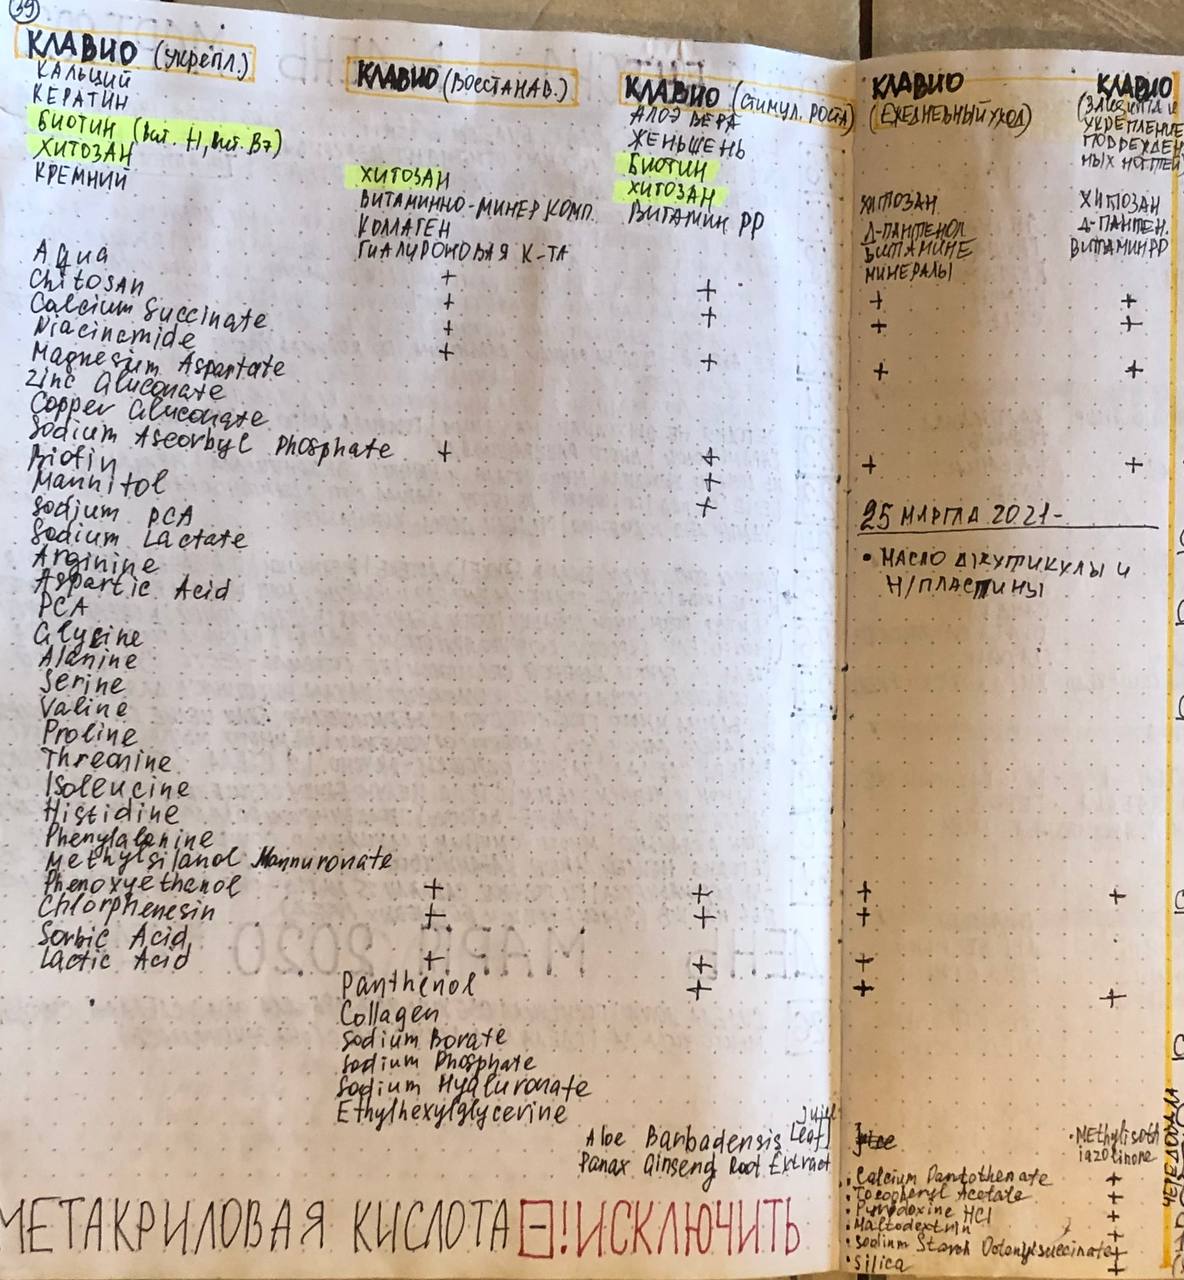 39
КЛАВИО (УКРЕПЛ.)
КАЛЬЦИЙ
КЕРАТИН
БИОТИН (вит. H, вит. B7)
ХИТОЗАН
КРЕМНИЙ
КЛАВИО (ВОССТАНАВ.)
ХИТОЗАН
ВИТАМИННО-МИНЕР. КОМП.
КОЛЛАГЕН
ГИАЛУРОНОВАЯ К-ТА
КЛАВИО (СТИМУЛ. РОСТА)
АЛОЭ ВЕРА
ЖЕНЬШЕНЬ
БИОТИН
ХИТОЗАН
ВИТАМИН PP
КЛАВИО
(ЕЖЕДНЕВНЫЙ УХОД)
ХИТОЗАН
Д-ПАНТЕНОЛ
ВИТАМИНЕ
МИНЕРАЛЫ
КЛАВИО
(ЗАЩИТА И
УКРЕПЛЕНИЕ
ПОВРЕЖДЕН
НЫХ НОГТЕЙ)
ХИТОЗАН
Д-ПАНТЕН.
ВИТАМИН PP
Aqua
Chitosan + + + +
Calcium Succinate + + + +
Niacinamide +
Magnesium Aspartate + + + +
Zinc Gluconate
Copper Gluconate
Sodium Ascorbyl Phosphate + + + +
Biotin +
Mannitol +
Sodium PCA
Sodium Lactate
Arginine
Aspartic Acid
PCA
Glycine
Alanine
Serine
Valine
Proline
Threonine
Isoleucine
Histidine
Phenylalanine
Methylsilanol Mannuronate
Phenoxyethanol + + + +
Chlorphenesin + + +
Sorbic Acid
Lactic Acid + + +
Panthenol + + +
Collagen
Sodium Borate
Sodium Phosphate
Sodium Hyaluronate
Ethylhexylglycerine
Aloe Barbadensis Leaf Juice
Panax Ginseng Root Extract
25 МАРТА 2021-
• МАСЛО Д/КУТИКУЛЫ И
Н/ПЛАСТИНЫ
• Methylisoth
iazolinone
• Calcium Pantothenate +
• Tocopheryl Acetate +
• Pyridoxine HCl +
• Maltodextrin +
• Sodium Starch Octenylsuccinate +
• Silica +
МЕТАКРИЛОВАЯ КИСЛОТА ⊟!ИСКЛЮЧИТЬ